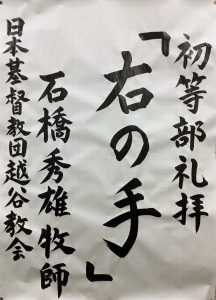 初等部礼拝
「右の手」
石橋秀雄牧師
日本基督教団越谷教会